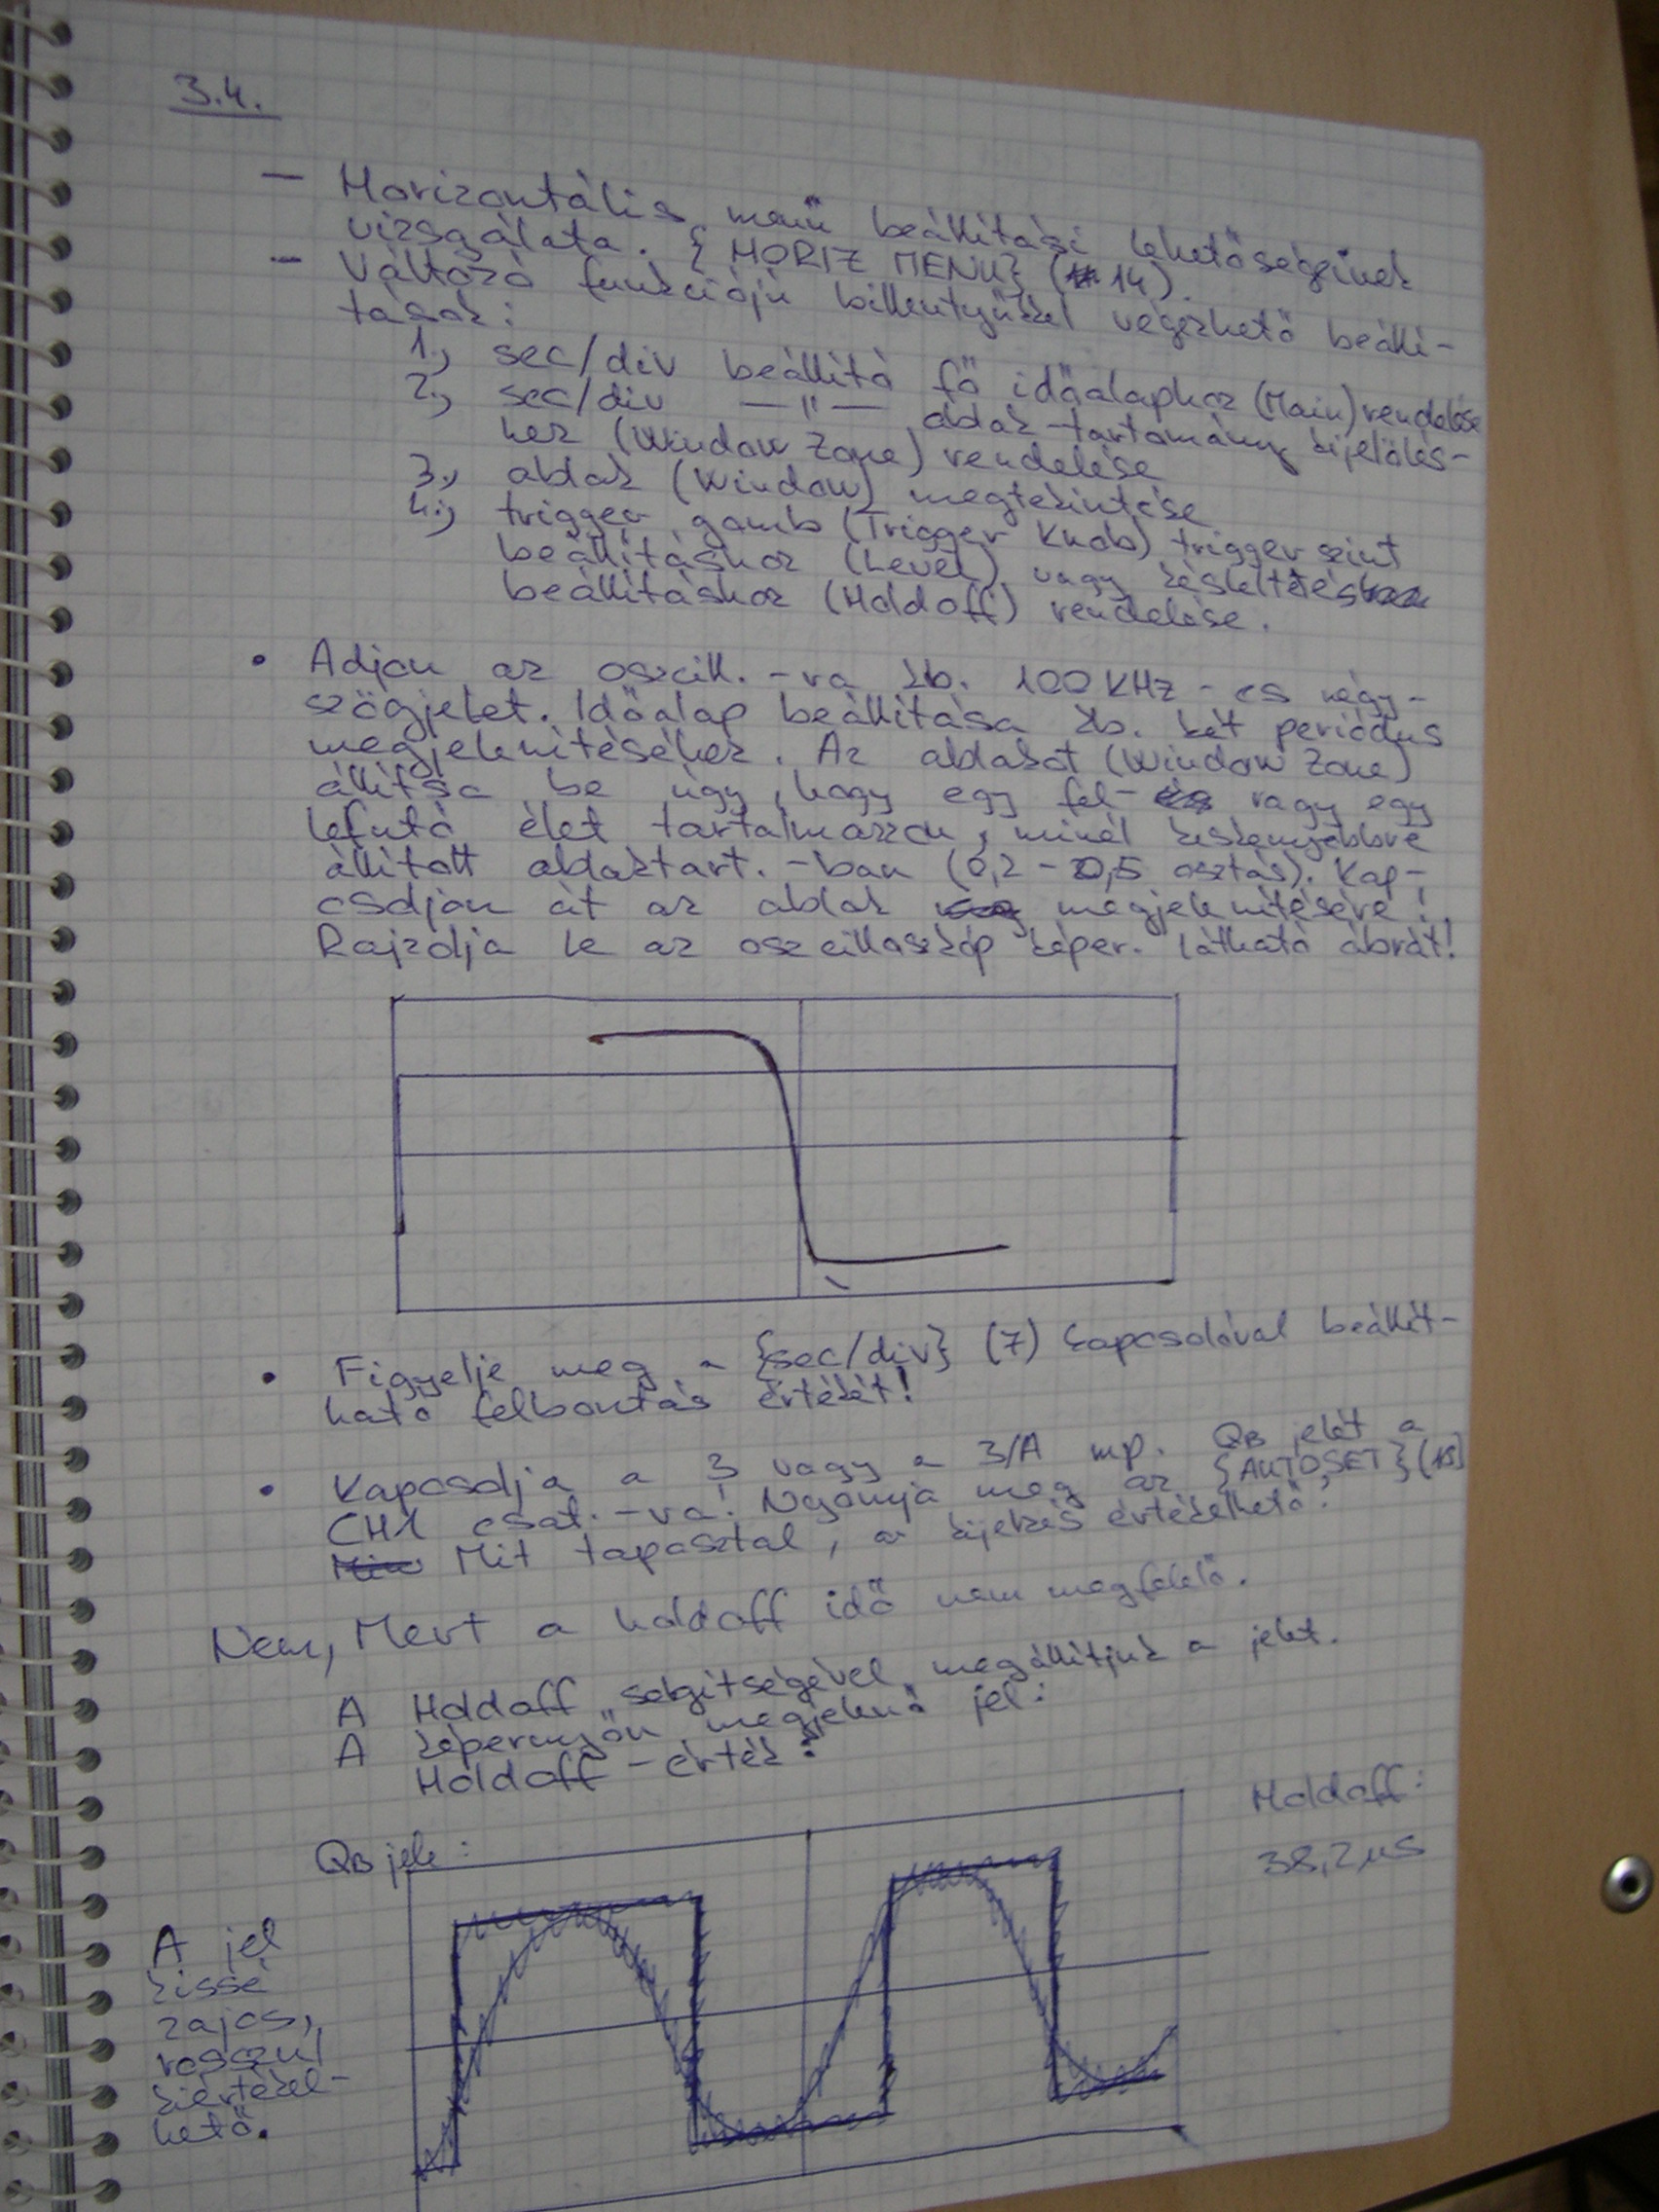 3.4.
– Horizontális menü beállítási lehetőségeinek
vizsgálata. {HORIZ MENU} (14).
– Változó funkciójú billentyűkkel végezhető beállí-
tások:
1., sec/div beállító fő időalaphoz (Main) rendelése
2., sec/div —"— ablak-tartomány kijelölés-
hez (Window Zone) rendelése
3., ablak (Window) megtekintése
4., trigger gomb (Trigger Knob) trigger szint
beállításhoz (Level) vagy késleltetés
beállításhoz (Holdoff) rendelése.
• Adjon az oszcill.-ra kb. 100 KHz-es négy-
szögjelet. Időalap beállítása kb. két periódus
megjelenítéséhez. Az ablakot (Window Zone)
állítsa be úgy, hogy egy fel- vagy egy
lefutó élet tartalmazzon, minél keskenyebbre
állított ablaktart.-ban (0,2-0,5 osztás). Kap-
csoljon át az ablak megjelenítésére!
Rajzolja le az oszcilloszkóp képer. látható ábrát!
• Figyelje meg a {sec/div} (7) kapcsolóval beállít-
ható felbontás értékét!
• Kapcsolja a 3 vagy a 3/A mp. QB jelét a
CH1 csat.-ra! Nyomja meg az {AUTOSET}
Mit tapasztal, a kijelzés értékelhető?
Nem, Mert a holdoff idő nem megfelelő.
A Holdoff segítségével megállítjuk a jelet.
A képernyőn megjelenő jel:
Holdoff-érték:
Holdoff:
38,2 µs
QB jele:
A jel
kissé
zajos,
rosszul
kiértékel-
hető.